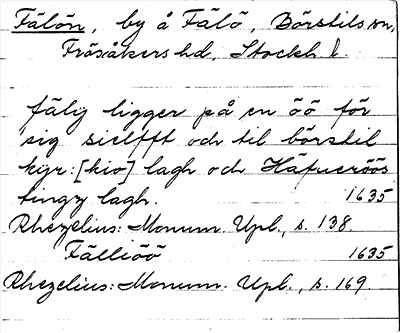 Fälön, by å Fälö, Börstils sn,
Frösåkers hd, Stockh l.
fälig ligger på en öö för
sig sielfft och til börstil
kyr: [kio] lagh och Häfueröös
tingz lagh. 1635
Rhezelius: Monum. Upl., s. 138.
Fälliöö 1635
Rhezelius: Monum. Upl., s. 169.